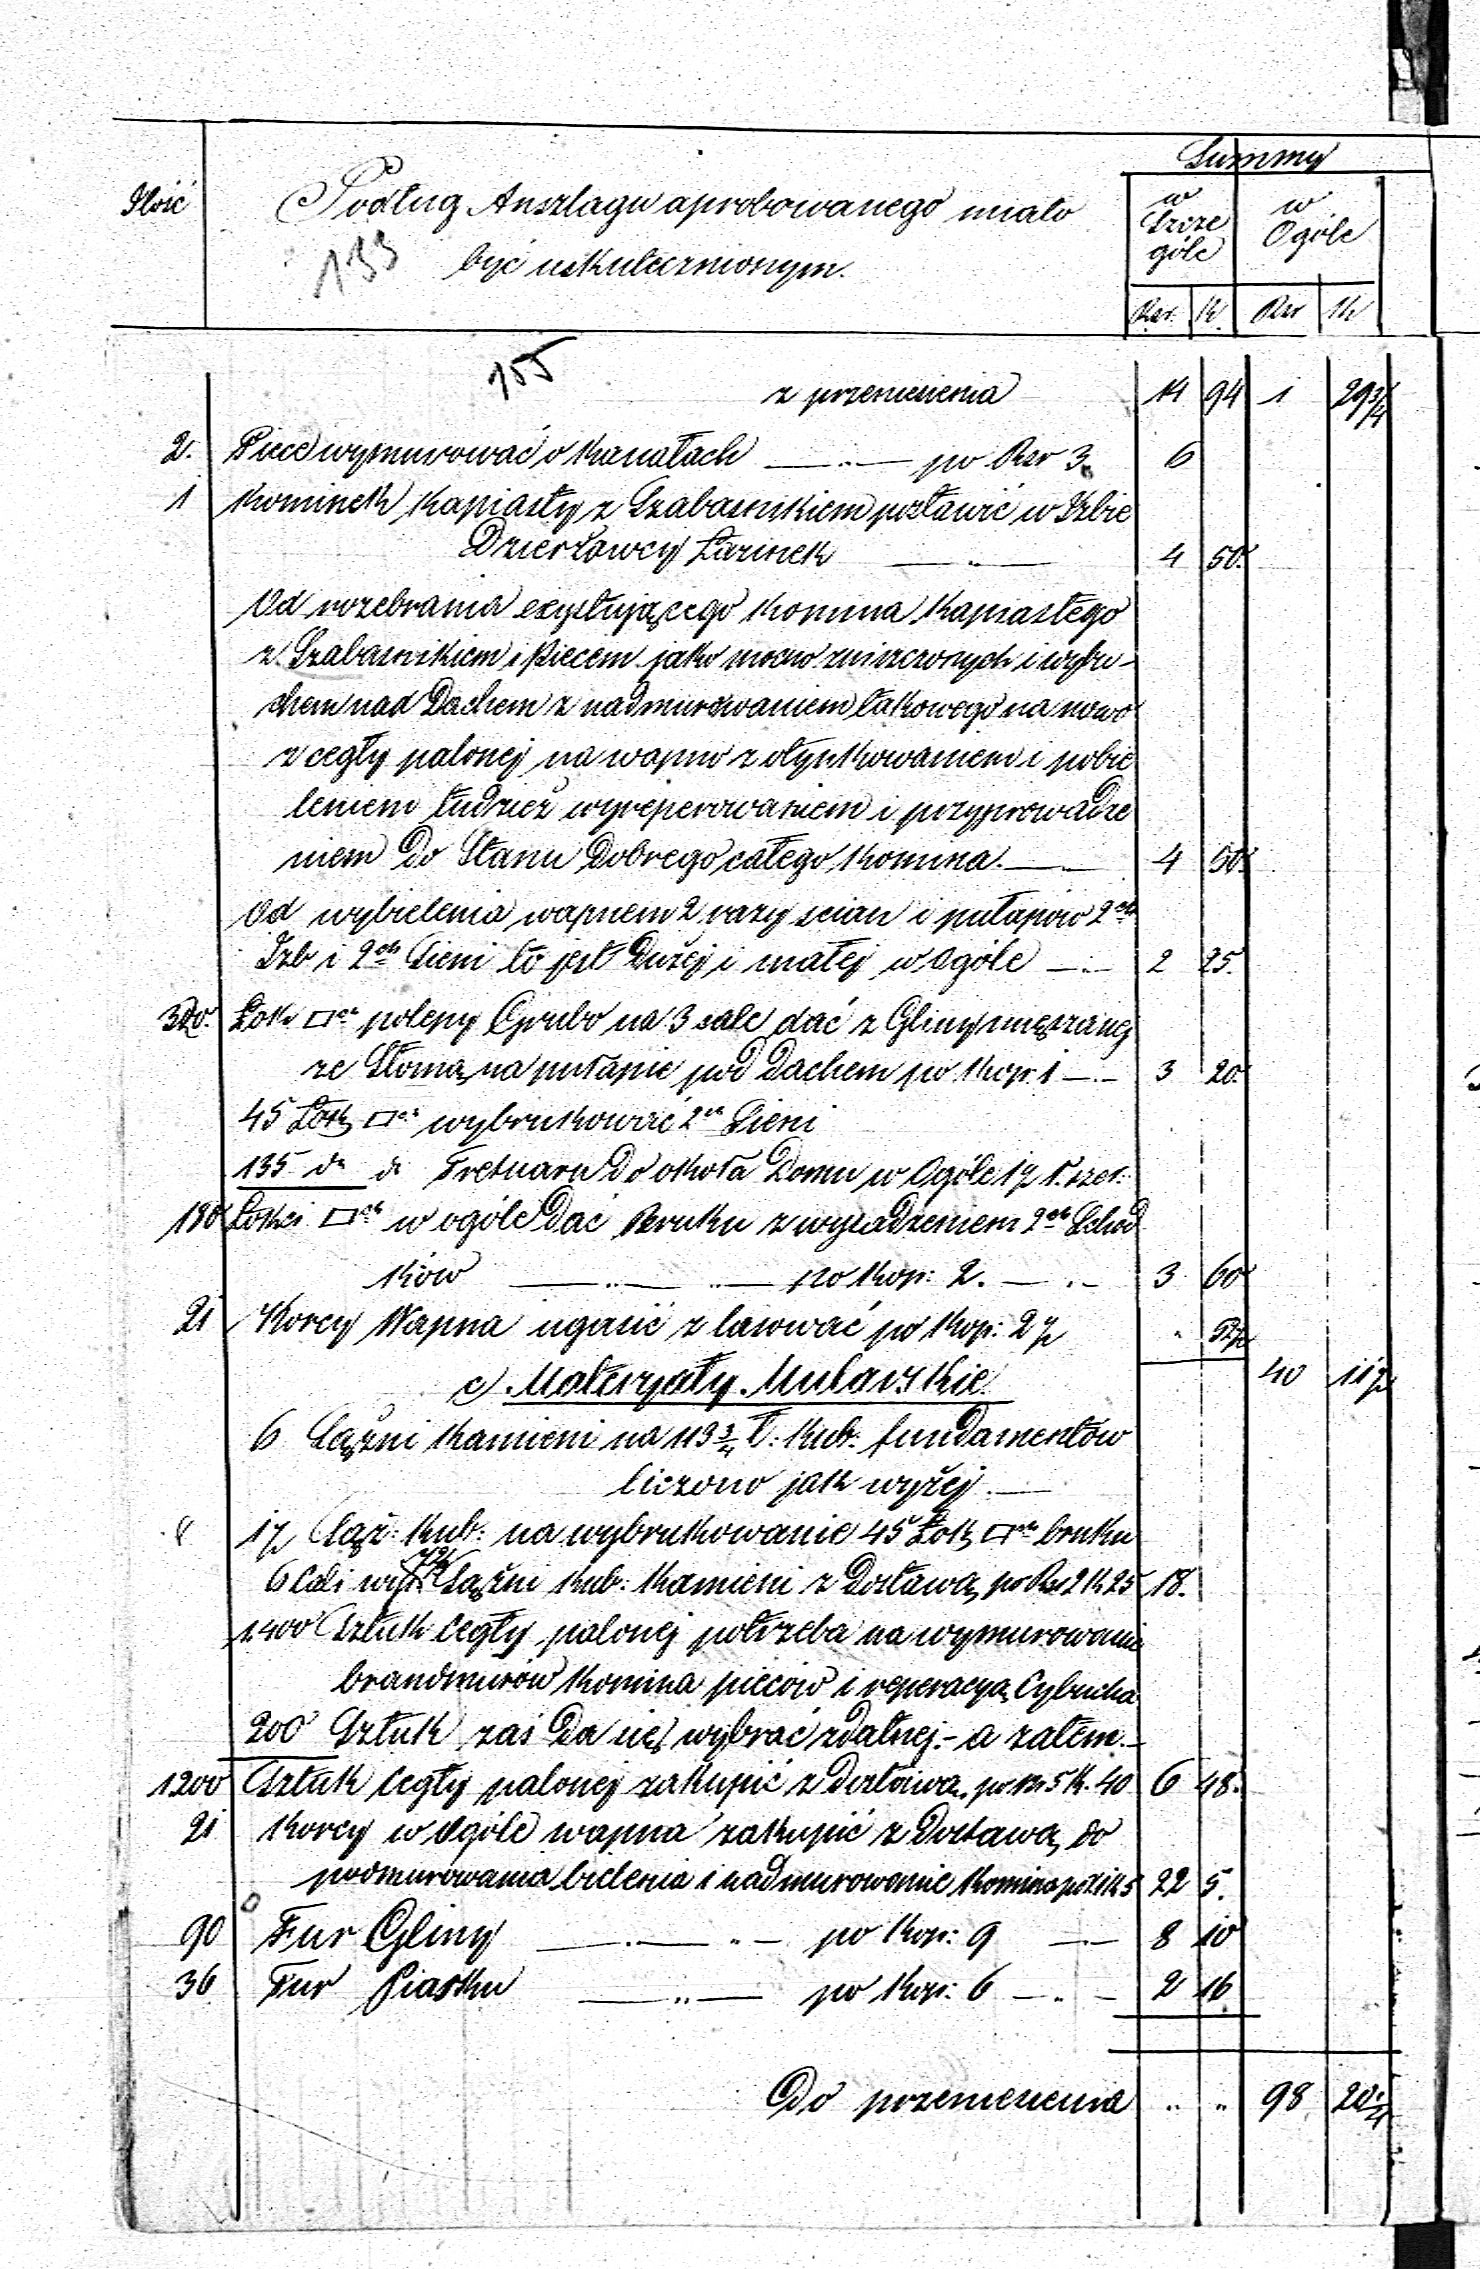 Summy
Ilość Podług Anszlagu aprobowanego miało w Szcze w
133 być uskutecznionym. góle Ogóle
Rsr. K. Rsr K
155
z przeniesienia 14 94 1 29 3/4
2. Piece wymurować o kanałach — " — po Rsr 3. 6
1 Kominek kapiasty z Szabasnikiem postawić w Izbie
Dzierżawcy Łazinek — " — 4 50.
Od rozebrania exystującego Komina kapiastego
z Szabasnikiem i piecem jako mocno zniszczonych i wybu-
chem nad Dachem z nadmurowaniem takowego na nowo
z cegły palonej na wapno z otynkowaniem i pobie
leniem tudzież wyreperowaniem i przyprowadze
niem do Stanu dobrego całego Komina. — 4 50.
Od wybielenia wapnem 2 razy scian i pułapów 2ch
Izb i 2ch Sieni to jest Dużej i małej w Ogóle — 2 25.
320. Łok □ch polepy Grubo na 3 cale dać z Gliny mięszanej
ze Słomą na pułapie pod Dachem po Kop. 1 — 3 20.
45 Łok □ch wybrukować 2ch Sieni
135 do do Tretuaru do okoła Domu w Ogóle 1½ ł. szer.
180 Łokci □ch w ogóle dać Bruku z wysadzeniem 2ch Schod
ków — " — " — po Kop: 2. — " — 3 60
21 Korcy Wapna ugasić z lasować po Kop: 2½ " 52½
40 11½
c) Materyały Mularskie.
6 Sążni kamieni na 113 3/4 Ł: Kub: fundamentów
liczono jak wyżej —
1½ Sąż: Kub: na wybrukowanie 45 Łok □ch bruku
6 Cali wys: Sążni Kub: Kamieni z Dostawą po Rs 2 K 25 18.
1400 Sztuk Cegły palonej potrzeba na wymurowanie
brandmurów Komina pieców i reperacyą Cybucha
200 Sztuk zaś da się wybrać zdatnej. - a zatem. —
1200 Sztuk Cegły palonej zakupić z dostawą. po Rs 5 K. 40 6 48.
21 Korcy w Ogóle wapna zakupić z Dostawą do
podmurowania bielenia i nadmurowanie Komina po R 1 K 5 22 5.
90 Fur Gliny — " — " — po Kop: 9 — 8 10
36 Fur Piasku — " — po Kop: 6 — " — 2 16
Do przeniesienia " " 98 20 1/4